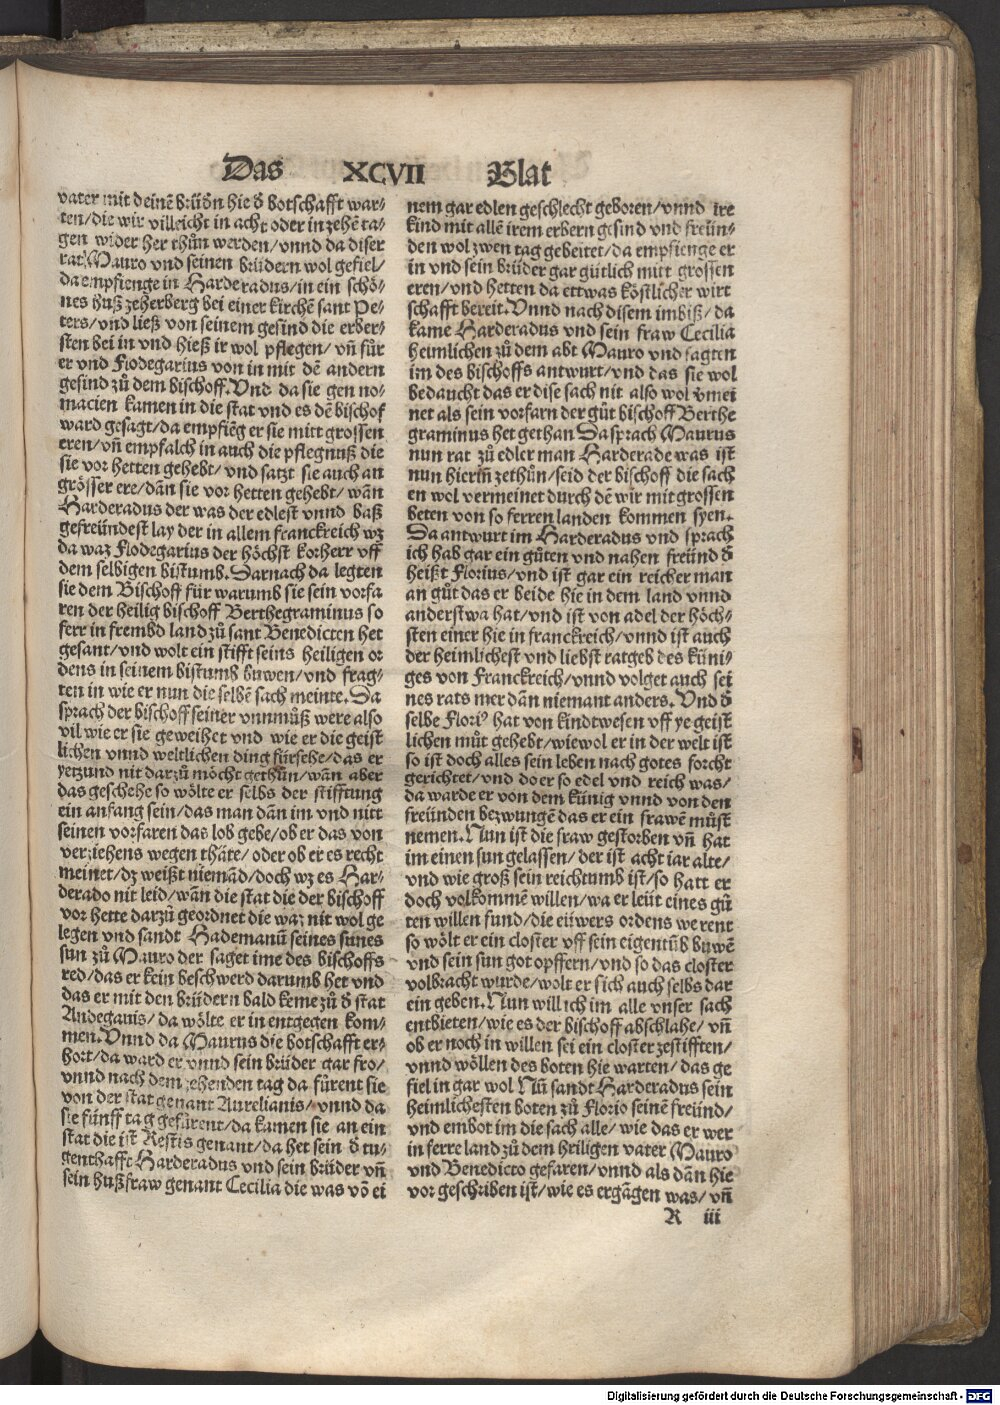 Das XCVII Blat
vater mit deinē brüdn hie d̄ botschafft war-
ten/die wir villeicht in acht oder in zehē ta-
gen wider her thůn werden/vnnd da diser
rat Mauro vnd seinen brüdern wol gefiel/
da empfienge in Harderadus/in ein schö-
nes huß zeherberg bei einer kirchē sant Pe-
ters/vnd ließ von seinem gesind die erber-
sten bei in vnd hieß ir wol pflegen/vñ für
er vnd Flodegarius von in mit dē andern
gesind zů dem bischoff. Vnd da sie gen no-
macien kamen in die stat vnd es dē bischof
ward gesagt/da empfiēg er sie mitt grossen
eren/vñ empfalch in auch die pflegnuß die
sie vor hetten gehebt/vnd satzt sie auch an
grösser ere/dān sie vor hetten gehebt/wān
Harderadus der was der edlest vnnd baß
gefreündest lay der in allem franckreich wz
da waz Flodegarius der höchst korherr vff
dem selbigen bistumb. Darnach da legten
sie dem Bischoff für warumb sie sein vorfa
ren der heilig bischoff Berthegraminus so
ferr in frembd land zů sant Benedicten het
gesant/vnd wolt ein stifft seins heiligen or
dens in seinem bistumb buwen/vnd frag-
ten in wie er nun die selbē sach meinte. Da
sprach der bischoff seiner vnmůß were also
vil wie er sie geweihet vnd wie er die geist
lichen vnnd weltlichen ding fürsehe/das er
yetzund nit darzů möcht gethůn/wān aber
das geschehe so wölte er selbs der stifftung
ein anfang sein/das man dān im vnd nitt
seinen vorfaren das lob gebe/ob er das von
verziehens wegen thäte/oder ob er es recht
meinet/dz weißt niemād/doch wz es Har-
derado nit leid/wān die stat die der bischoff
vor hette darzů geordnet die waz nit wol ge
legen vnd sandt Hademanū seines sunes
sun zů Mauro der saget ime des bischoffs
red/das er kein beschwerd darumb het vnd
das er mit den brüdern bald keme zů d̄ stat
Andegauis/da wölte er in entgegen kom-
men. Vnnd da Maurus die botschafft er-
hort/da ward er vnnd sein brüder gar fro/
vnnd nach dem zehenden tag da fůrent sie
von der stat genant Aurelianis/vnnd da
sie fünff tag gefůrent/da kamen sie an ein
stat die ist Restis genant/da het sein d̄ tu-
genthafft Harderadus vnd sein brüder vñ
sein hußfraw genant Cecilia die was vō ei
nem gar edlen geschlecht geboren/vnnd ire
kind mit allē irem erbern gesind vnd freün-
den wol zwen tag gebeitet/da empfienge er
in vnd sein brüder gar gütlich mitt grossen
eren/vnd hetten da ettwas köstlicher wirt
schafft bereit. Vnnd nach disem imbiß/da
kame Harderadus vnd sein fraw Cecilia
heimlichen zů dem abt Mauro vnd sagten
im des bischoffs antwurt/vnd das sie wol
bedaucht das er dise sach nit also wol v̄mei
net als sein vorfarn der gůt bischoff Berthe
graminus het gethan Da sprach Maurus
nun rat zů edler man Harderade was ist
nun hieriñ zethůn/seid der bischoff die sach
en wol vermeinet durch dē wir mit grossen
beten von so ferren landen kommen syen.
Da antwurt im Harderadus vnd sprach
ich hab gar ein gůten vnd nahen freünd d̄
heißt Florius/vnd ist gar ein reicher man
an gůt das er beide hie in dem land vnnd
anderstwa hat/vnd ist von adel der höch-
sten einer hie in franckreich/vnnd ist auch
der heimlichest vnd liebst ratgeb des küni-
ges von Franckreich/vnnd volget auch sei
nes rats mer dān niemant anders. Vnd d̄
selbe Floriꝰ hat von kindtwesen vff ye geist
lichen můt gehebt/wiewol er in der welt ist
so ist doch alles sein leben nach gotes forcht
gerichtet/vnd do er so edel vnd reich was/
da warde er von dem künig vnnd von den
freünden bezwungē das er ein frawē můst
nemen. Nun ist die fraw gestorben vñ hat
im einen sun gelassen/der ist acht iar alte/
vnd wie groß sein reichtumb ist/so hatt er
doch volkommē willen/wa er leüt eines gů
ten willen fund/die eüwers ordens werent
so wölt er ein closter vff sein eigentūb buwē
vnd sein sun got opffern/vnd so das closter
volbracht wurde/wolt er sich auch selbs dar
ein geben. Nun will ich im alle vnser sach
entbieten/wie es der bischoff abschlahe/vñ
ob er noch in willen sei ein closter zestifften/
vnnd wöllen des boten hie warten/das ge
fiel in gar wol Nū sandt Harderadus sein
heimlichesten boten zů Florio seinē freünd/
vnd embot im die sach alle/wie das er wer
in ferre land zů dem heiligen vater Mauro
vnd Benedicto gefaren/vnnd als dān hie
vor geschriben ist/wie es ergāgen was/vñ
R iii
Digitalisierung gefördert durch die Deutsche Forschungsgemeinschaft - DFG